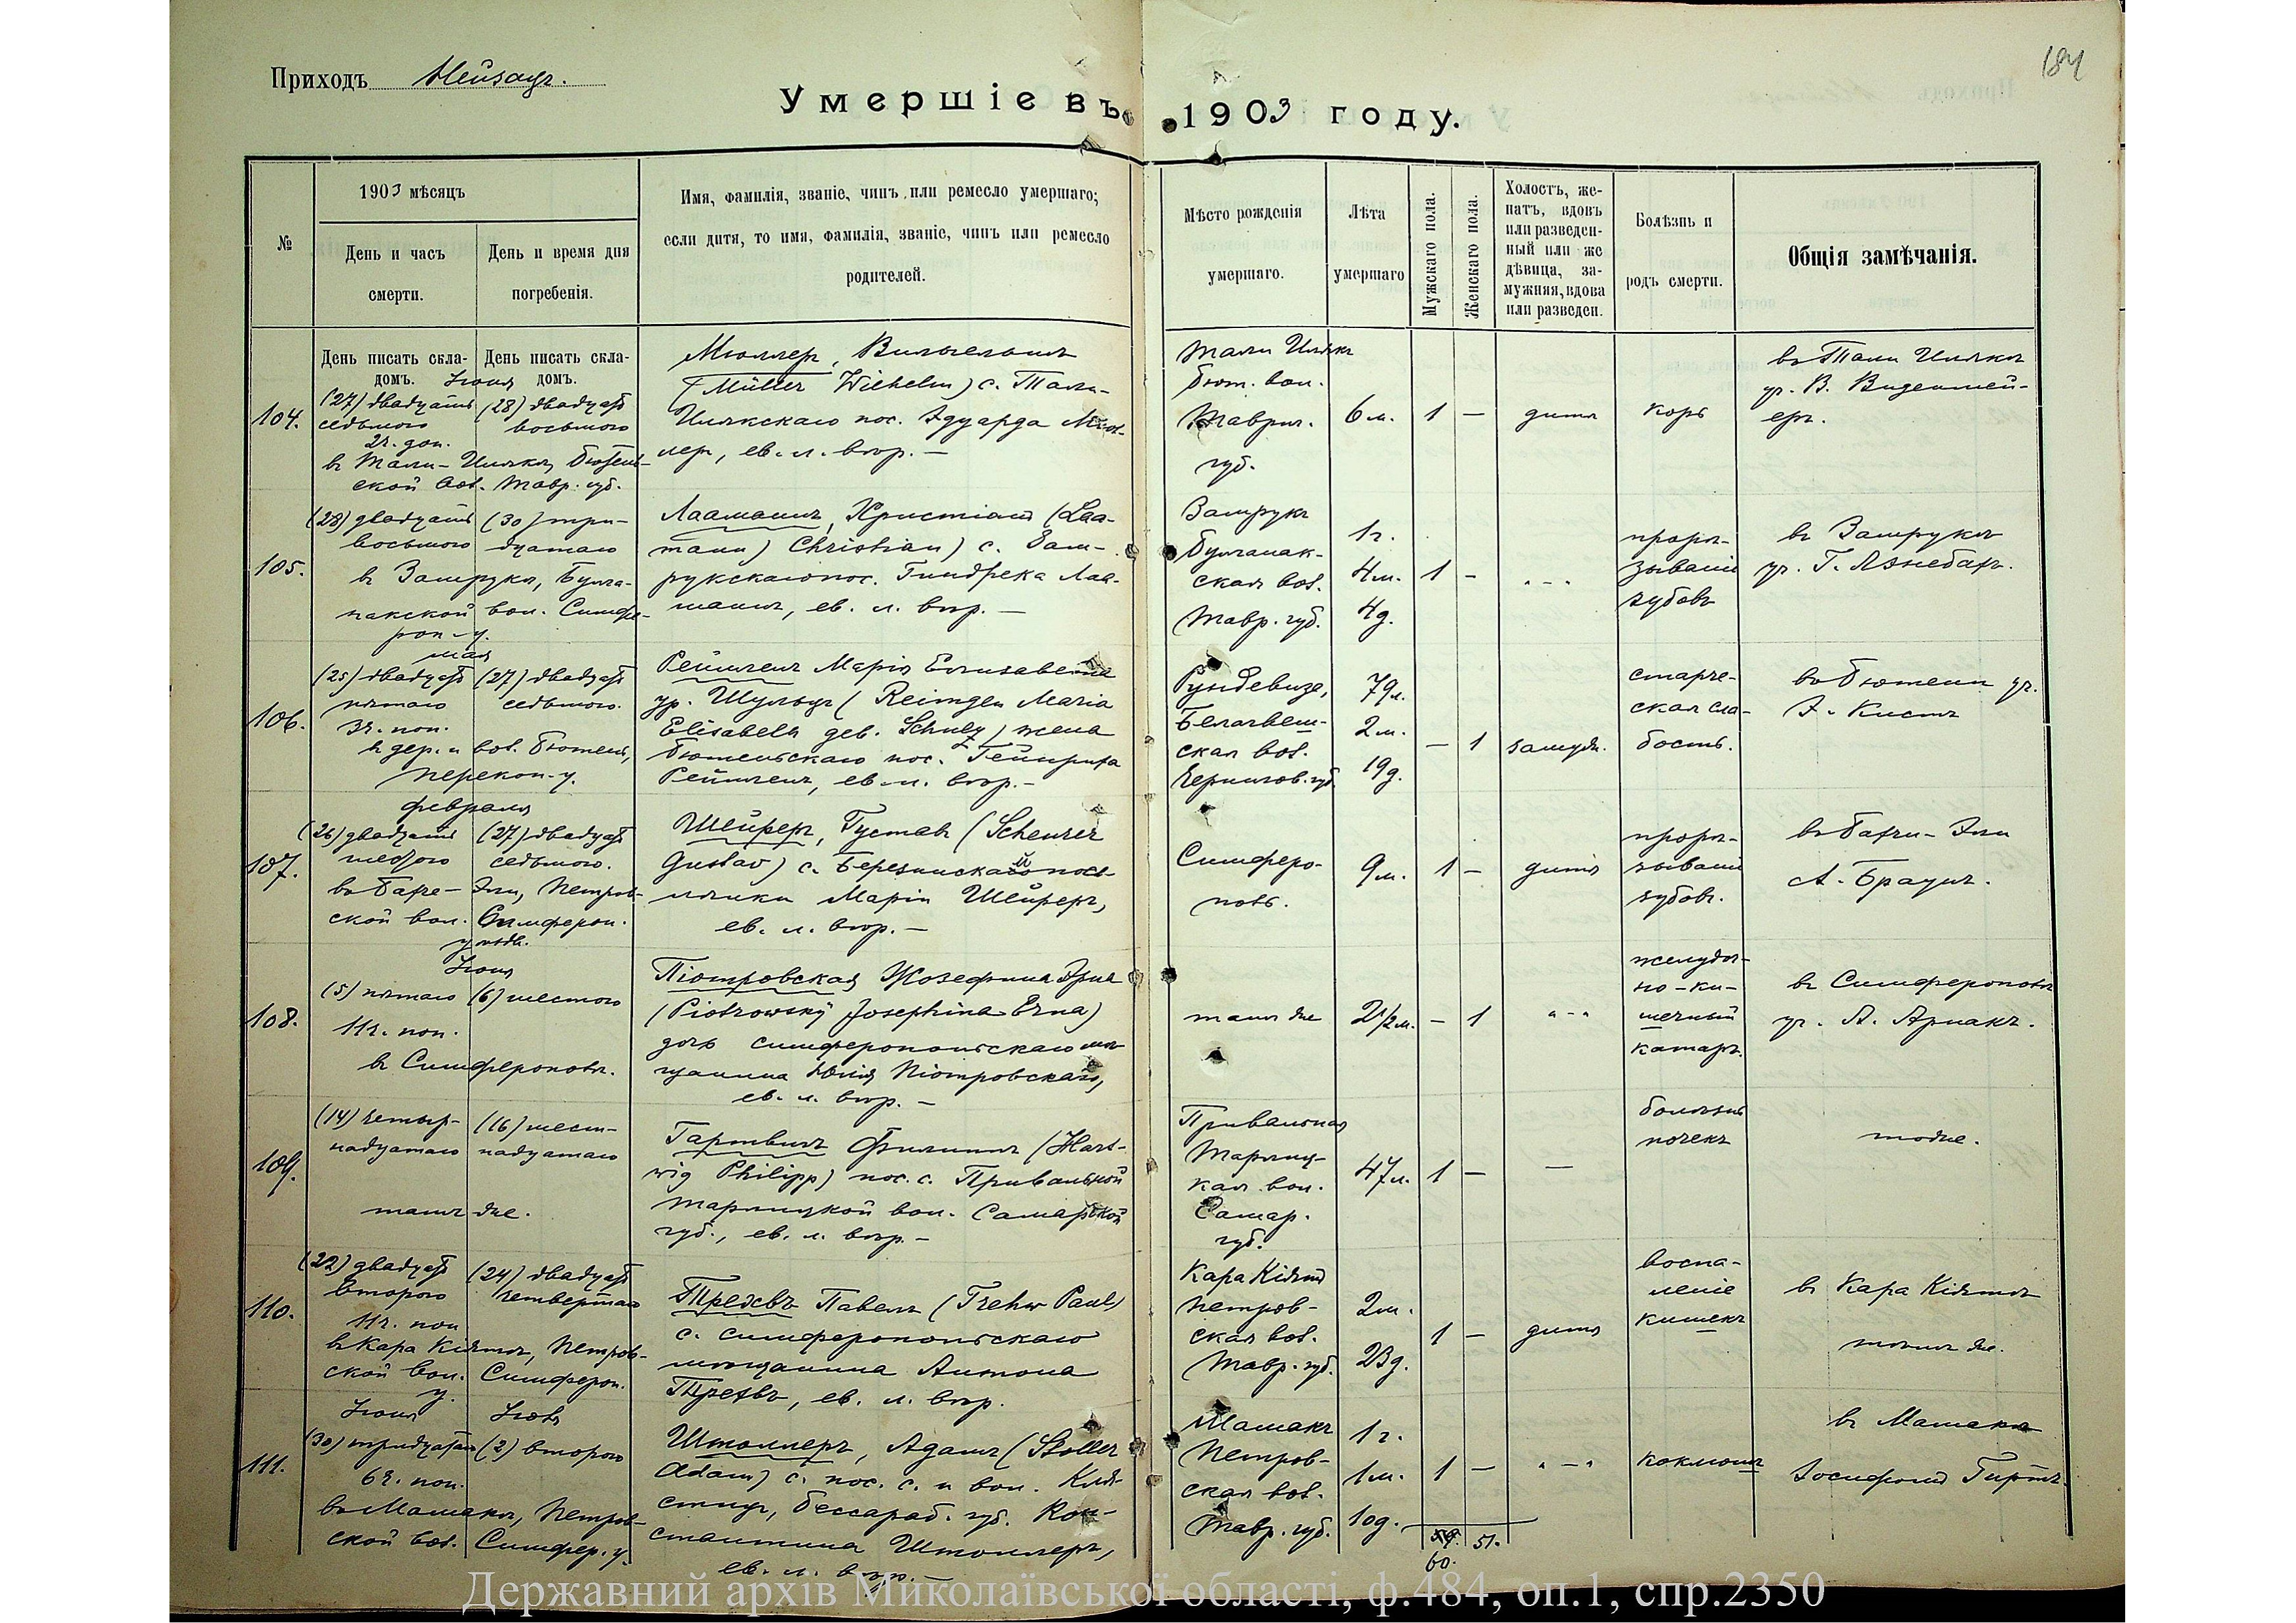 184
Приходъ Нейзацъ.
Умершіе въ 1903 году.
№
1903 мѣсяцъ
День и часъ
смерти.
День и время дня
погребенія.
Имя, фамилія, званіе, чинъ или ремесло умершаго;
если дитя, то имя, фамилія, званіе, чинъ или ремесло
родителей.
Мѣсто рожденія
умершаго.
Лѣта
умершаго
Мужскаго пола.
Женскаго пола.
Холостъ, же-
натъ, вдовъ
или разведен-
ный или же
дѣвица, за-
мужняя, вдова
или разведен.
Болѣзнь и
родъ смерти.
Общія замѣчанія.
День писать скла-
домъ.
День писать скла-
домъ.
104.
Іюня
(27) двадцать
седьмого
2ч. поп.
(28) двадцать
восьмого
ской вол. Тавр. губ.
Мюллеръ, Вильгельмъ
(Müller Wilhelm) с.
пос. Эдуарда Мюл-
леръ, ев. л. вѣр. –
бют. вол.
Таврич.
губ.
6 м.
1
–
дитя
корь
уч. В. Виденмей-
еръ.
105.
(28) двадцать
восьмого
(30) три-
дцатаго
въ Замрукѣ, Булга-
накской вол. Симфе-
роп. у.
Лааманъ, Христіанъ (Laa-
mann) Christian) с. Зам-
рукскаго пос. Гиндрека Лаа-
манъ, ев. л. вѣр. –
Замрукъ
Булганак-
ская вол.
Тавр. губ.
1г.
4м.
4д.
1
–
" – "
прорѣ-
зываніе
зубовъ
въ Замрукѣ
уч. Г. Лэнебаръ.
106.
мая
(25) двадцать
пятаго
3ч. поп.
(27) двадцать
седьмого.
въ дер. и вол. Бютень,
Перекоп. у.
Реймгенъ Марія Елизавета
ур. Шульцъ (Reimgen Maria
Elisabeth geb. Schulz) жена
Бютеньскаго пос. Гейнриха
Реймгенъ, ев. л. вѣр. –
Рундевизе,
Белавеш-
ская вол.
Чернигов. губ.
79л.
2м.
19д.
–
1
замужн.
старче-
ская сла-
бость.
въ Бютени уч.
Э. Кистъ
107.
февраля
(26) двадцать
шестого
(27) двадцать
седьмого.
въ Бахче-Эли, Петров-
ской вол. Симфероп.
уѣзда.
Шейреръ, Густавъ (Scheurer
Gustav) с. посе-
лянки Маріи Шейреръ,
ев. л. вѣр. –
Симферо-
поль.
9м.
1
–
дитя
прорѣ-
зываніе
зубовъ.
въ Бахчи-Эли
А. Браунъ.
108.
Іюня
(5) пятаго
11ч. поп.
(6) шестого
въ Симферополѣ.
Піотровская Жозефина Эрна
(Piotrowský Josephina Erna)
дочь симферопольскаго мѣ-
щанина Юлія Піотровскаго,
ев. л. вѣр. –
тамъ же
2½м.
–
1
" – "
желудоч-
но-ки-
шечный
катаръ.
въ Симферополѣ
уч. А. Арнакъ.
109.
(14) четыр-
надцатаго
(16) шест-
надцатаго
тамъ же.
Гартвигъ Филиппъ (Hart-
wig Philipp) пос. с. Привальной
Тарлицкой вол. Самарской
губ., ев. л. вѣр. –
Привальная
Тарлиц-
кая вол.
Самар.
губ.
47л.
1
–
—
болѣзнь
почекъ
тоже.
110.
(22) двадцать
второго
11ч. поп
(24) двадцать
четвертаго
въ Кара Кіятѣ, Петров-
ской вол. Симфероп.
у.
Трехвъ Павелъ (Trehw Paul)
с. симферопольскаго
мѣщанина Антона
Трехвъ, ев. л. вѣр.
Кара Кіятъ
Петров-
ская вол.
Тавр. губ.
2м.
23д.
1
–
дитя
воспа-
леніе
кишекъ
въ Кара Кіятѣ
тотъ же.
111.
Іюня
Іюля
(30) тридцатаго
6ч. поп.
(2) второго
въ Мамакѣ, Петров-
ской вол. Симфер. у.
Штоллеръ, Адамъ (Stoller
Adam) с. пос. с. и вол. Кля-
стицъ, бессараб. губ. Кон-
стантина Штоллеръ,
ев. л. вѣр. –
Мамакъ
Петров-
ская вол.
Тавр. губ.
1г.
1м.
10д.
1
–
" – "
коклюшъ
въ Мамакѣ
Іосифъ Гиртъ.
60.
51.
Державний архів Миколаївської області, ф.484, оп.1, спр.2350